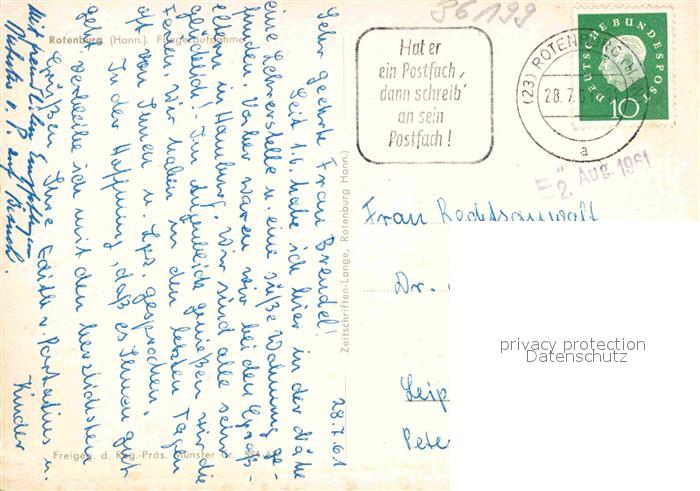 36199
Rotenburg (Hann.) Fliegeraufnahme
Hat er
ein Postfach,
dann schreib'
an sein
Postfach!
(23) ROTENBURG
28.7.61
a
DEUTSCHE BUNDESPOST
10
2. Aug. 1961
28.7.61
Sehr geehrte Frau Brendel!
Seit 1.6. habe ich hier in der Nähe
eine Lehrerstelle u. eine süße Wohnung ge-
funden. Vorher waren wir bei den Groß-
eltern in Hamburg. Wir sind alle sehr
glücklich! Im Augenblick genießen wir die
Ferien. Wir haben in den letzten Tagen
oft von Ihnen u. Lpz. gesprochen.
In der Hoffnung, daß es Ihnen gut
geht verbleibe ich mit den herzlichsten
Grüßen Ihre Edith v. u.
Kinder
Mit freundlichen Empfehlungen
Zeitschriften-Lange, Rotenburg Hann.)
Frau Rechtsanwalt
Dr.
Leip
Peter
privacy protection
Datenschutz
Freigeg. d. Reg.-Präs. Münster Nr.